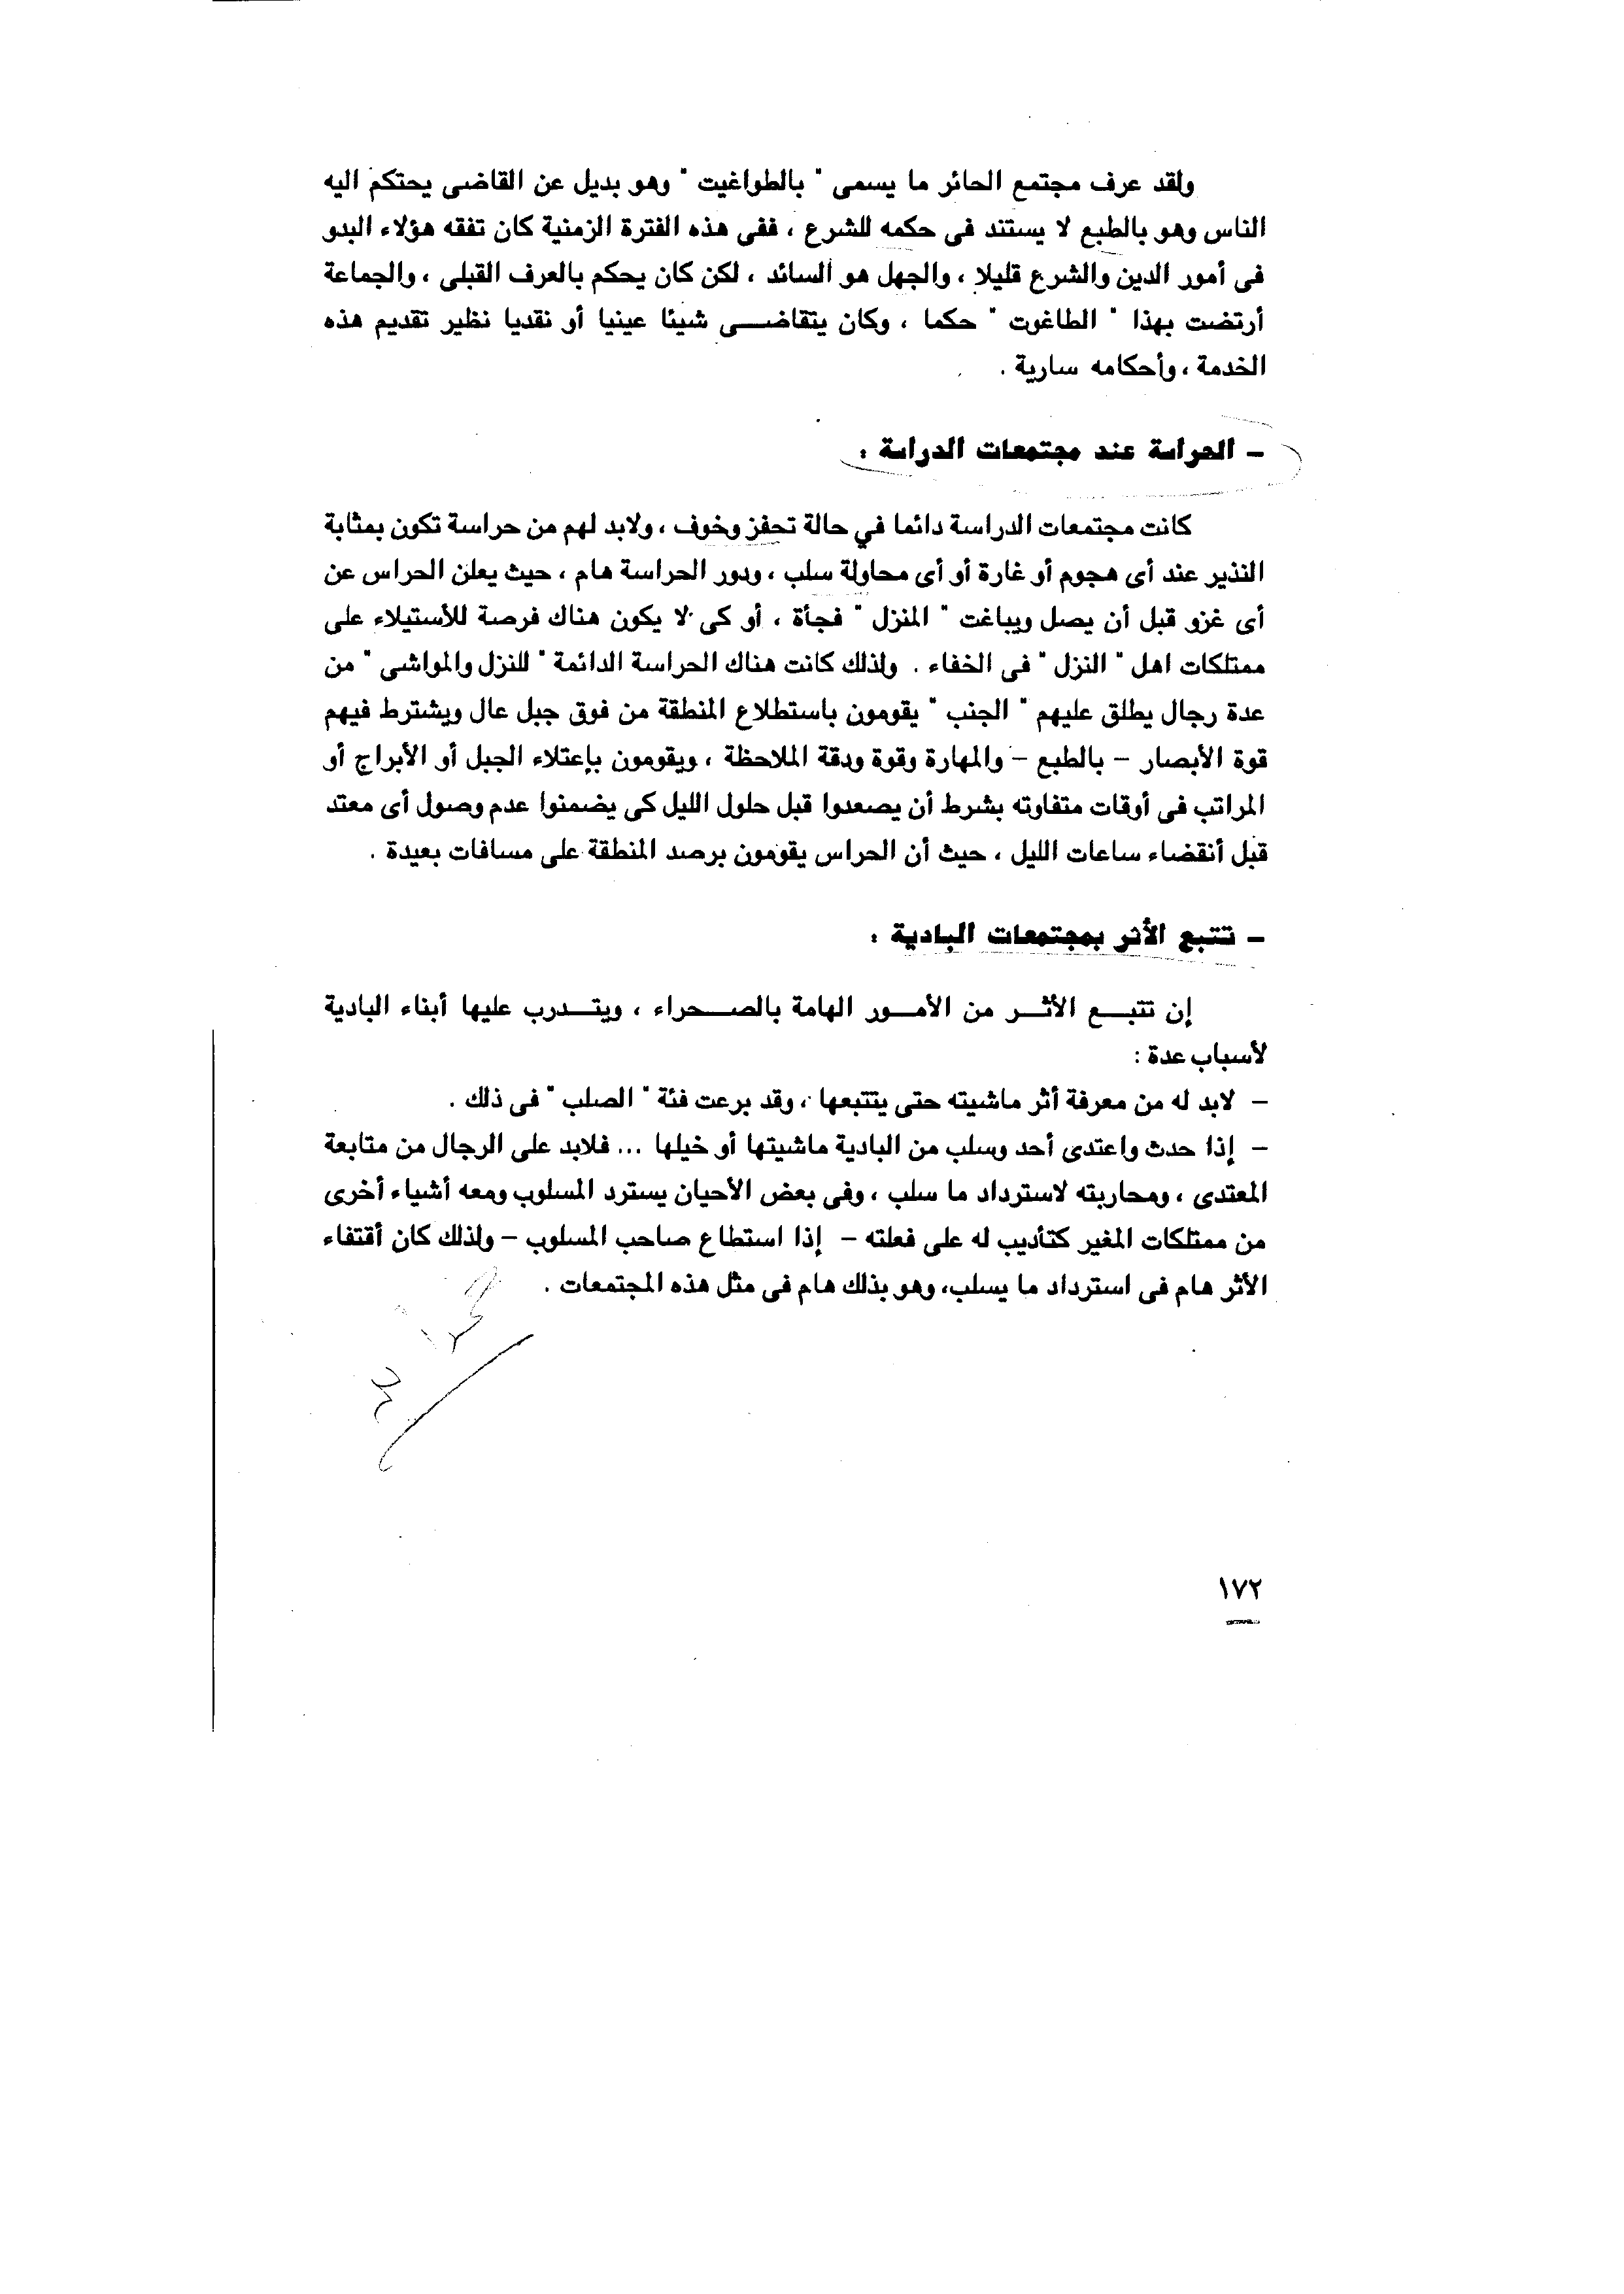 ولقد عرف مجتمع الحائر ما يسمى " بالطواغيت " وهو بديل عن القاضى يحتكم اليه
الناس وهو بالطبع لا يستند فى حكمه للشرع ، ففى هذه الفترة الزمنية كان تفقه هؤلاء البدو
فى أمور الدين والشرع قليلا ، والجهل هو السائد ، لكن كان يحكم بالعرف القبلى ، والجماعة
أرتضت بهذا " الطاغوت " حكما ، وكان يتقاضــى شيئا عينيا أو نقديا نظير تقديم هذه
الخدمة ، وأحكامه سارية .
– الحراسة عند مجتمعات الدراسة :
كانت مجتمعات الدراسة دائما في حالة تحفز وخوف ، ولابد لهم من حراسة تكون بمثابة
النذير عند أى هجوم أو غارة أو أى محاولة سلب ، ودور الحراسة هام ، حيث يعلن الحراس عن
أى غزو قبل أن يصل ويباغت " المنزل " فجأة ، أو كى لا يكون هناك فرصة للأستيلاء على
ممتلكات اهل " النزل " فى الخفاء . ولذلك كانت هناك الحراسة الدائمة " للنزل والمواشى " من
عدة رجال يطلق عليهم " الجنب " يقومون باستطلاع المنطقة من فوق جبل عال ويشترط فيهم
قوة الأبصار – بالطبع – والمهارة وقوة ودقة الملاحظة ، ويقومون بإعتلاء الجبل أو الأبراج أو
المراتب فى أوقات متفاوته بشرط أن يصعدوا قبل حلول الليل كى يضمنوا عدم وصول أى معتد
قبل أنقضاء ساعات الليل ، حيث أن الحراس يقومون برصد المنطقة على مسافات بعيدة .
– تتبع الأثر بمجتمعات البادية :
إن تتبــع الأثــر من الأمــور الهامة بالصــحراء ، ويتــدرب عليها أبناء البادية
لأسباب عدة :
– لابد له من معرفة أثر ماشيته حتى يتتبعها ، وقد برعت فئة " الصلب " فى ذلك .
– إذا حدث واعتدى أحد وسلب من البادية ماشيتها أو خيلها ... فلابد على الرجال من متابعة
المعتدى ، ومحاربته لاسترداد ما سلب ، وفى بعض الأحيان يسترد المسلوب ومعه أشياء أخرى
من ممتلكات المغير كتأديب له على فعلته – إذا استطاع صاحب المسلوب – ولذلك كان أقتفاء
الأثر هام فى استرداد ما يسلب، وهو بذلك هام فى مثل هذه المجتمعات .
١٧٢